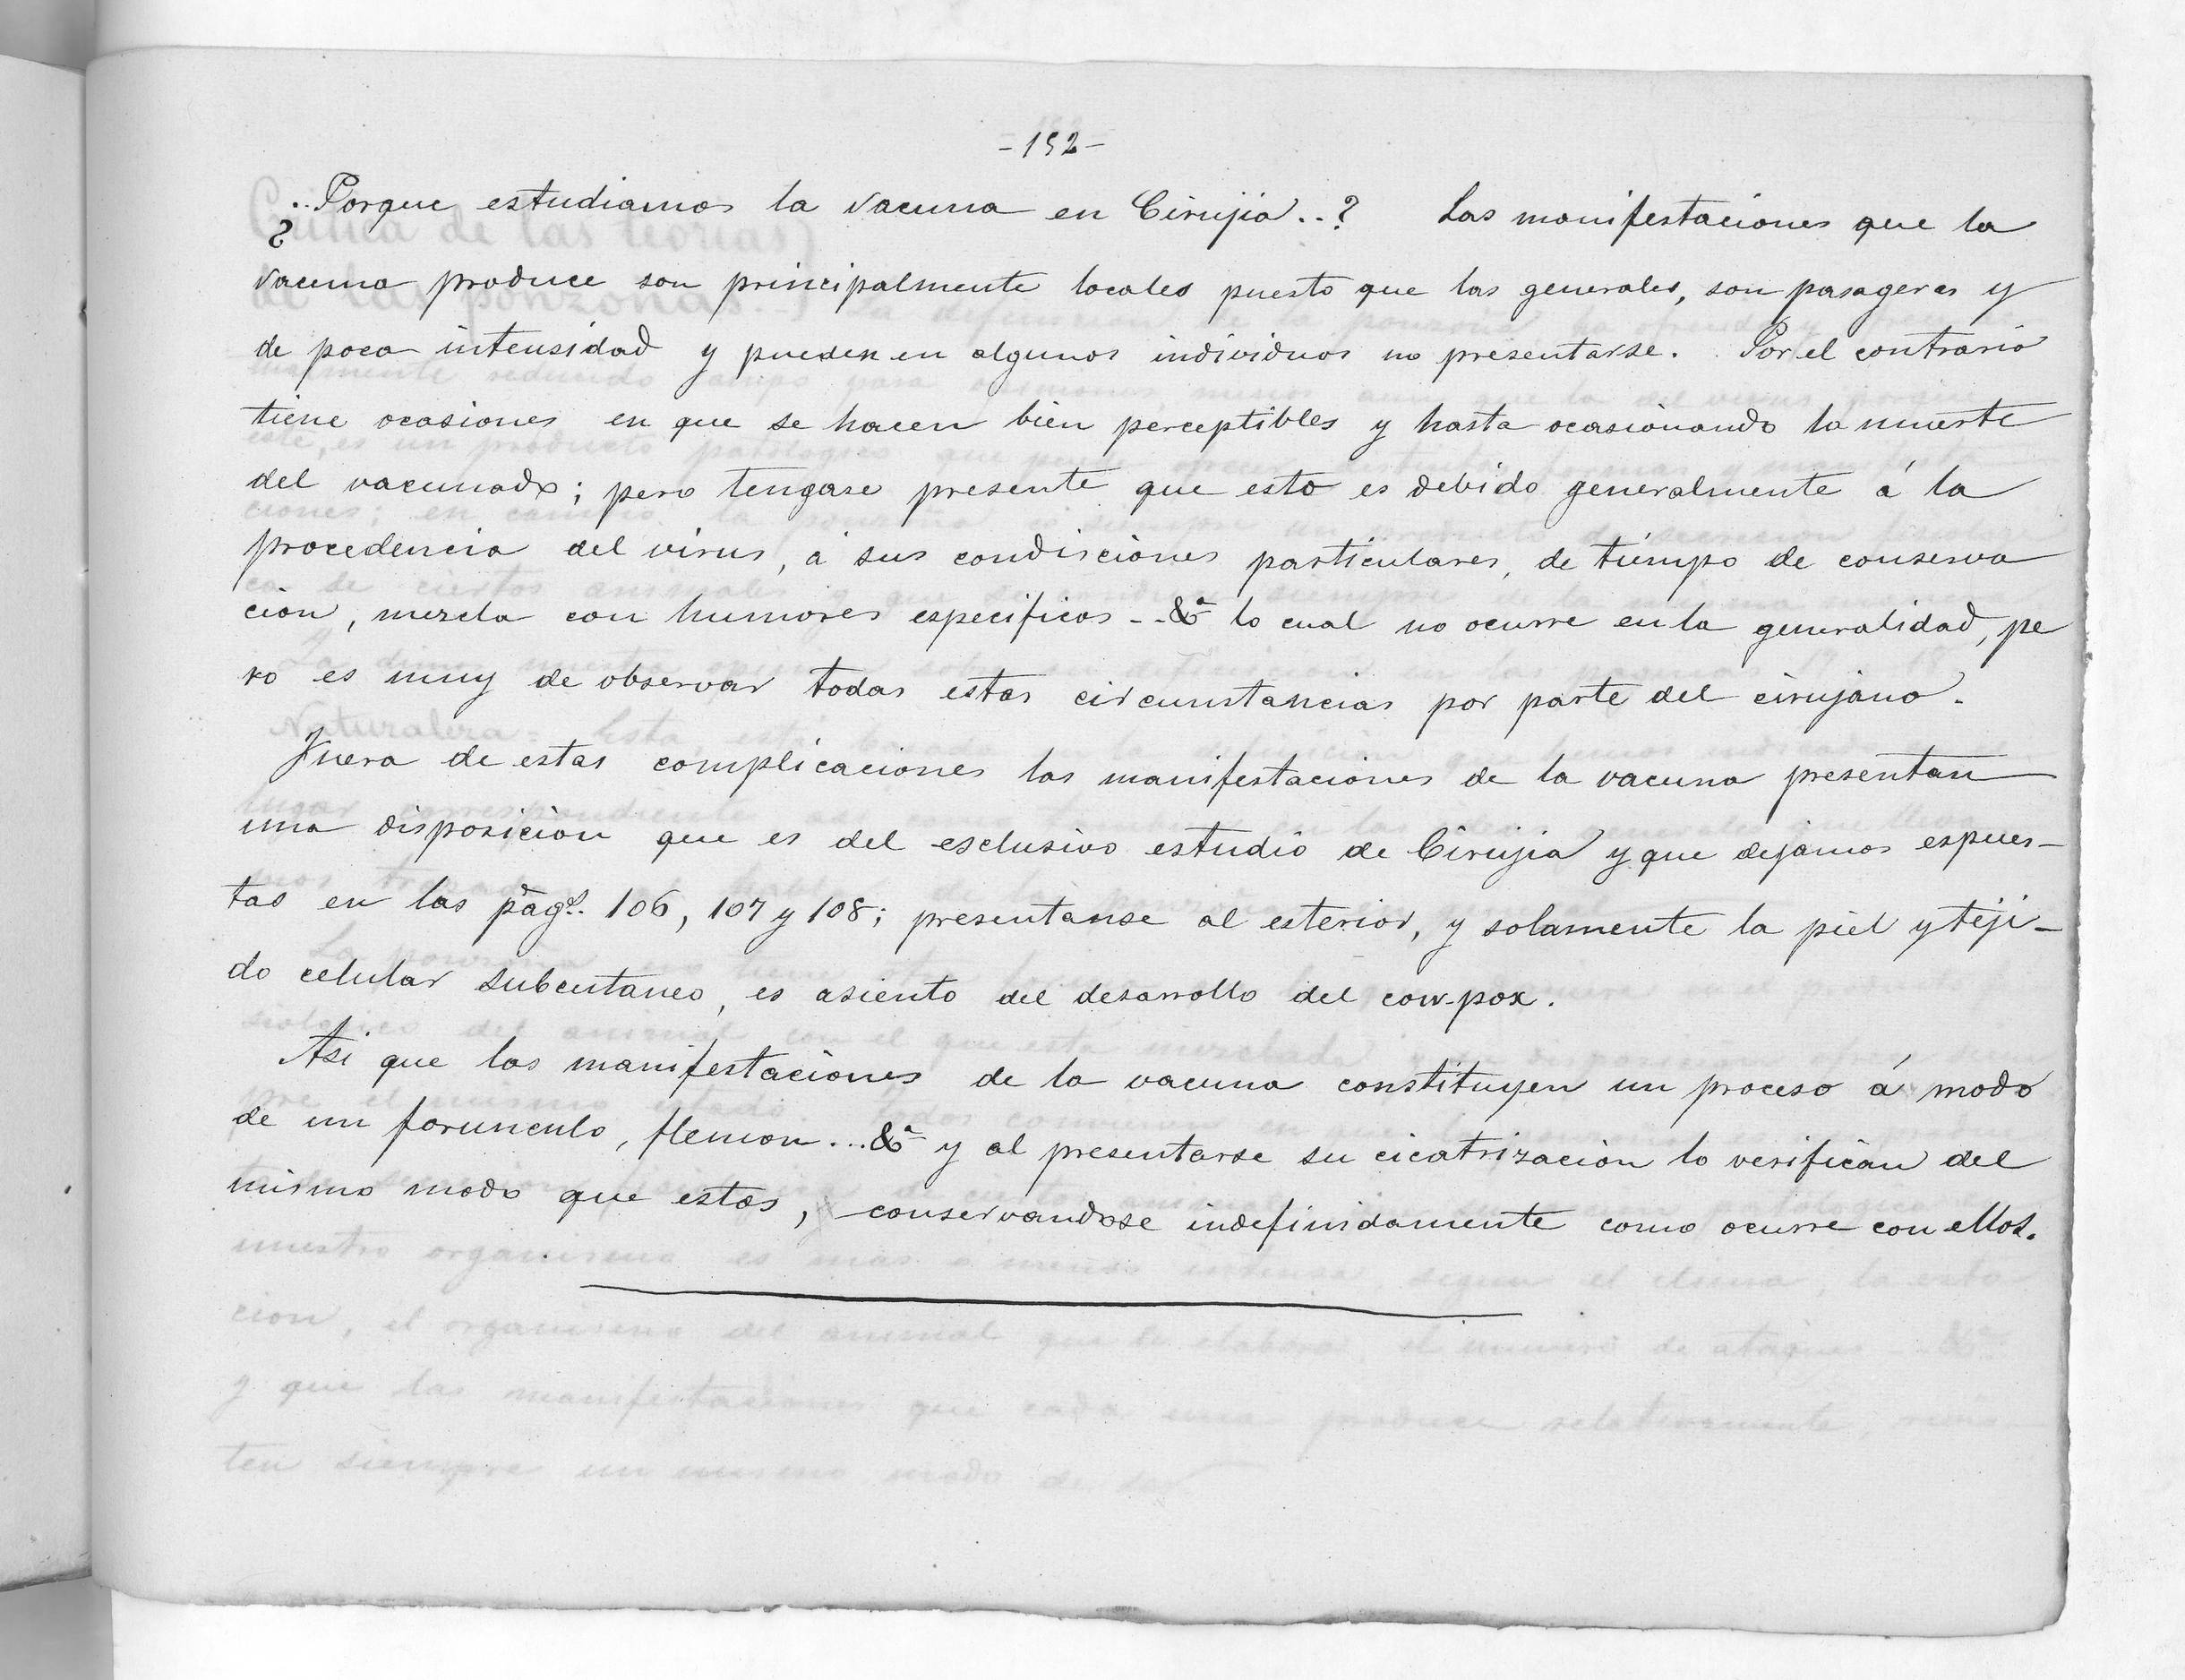 -192-
¿..Porque estudiamos la vacuna en Cirujia..? Las manifestaciones que la
vacuna produce son principalmente locales puesto que las generales, son pasageras y
de poca intensidad y pueden en algunos individuos no presentarse. Por el contrario
tiene ocasiones en que se hacen bien perceptibles y hasta ocasionando la muerte
del vacunado; pero tengase presente que esto es debido generalmente á la
procedencia del virus, á sus condiciones particulares, de tiempo de conserva
cion, mezcla con humores especificos - - &ª lo cual no ocurre en la generalidad, pe
ro es muy de observar todas estas circunstancias por parte del cirujano.
Fuera de estas complicaciones las manifestaciones de la vacuna presentan
una disposicion que es del esclusivo estudio de Cirujia y que dejamos espues-
tas en las págs. 106, 107 y 108; presentanse al esterior, y solamente la piel y teji-
do celular subcutaneo, es asiento del desarrollo del cow-pox.
Asi que las manifestaciones de la vacuna constituyen un proceso á modo
de un forunculo, flemon...&ª y al presentarse su cicatrizacion lo verifican del
mismo modo que estos, conservandose indefinidamente como ocurre con ellos.